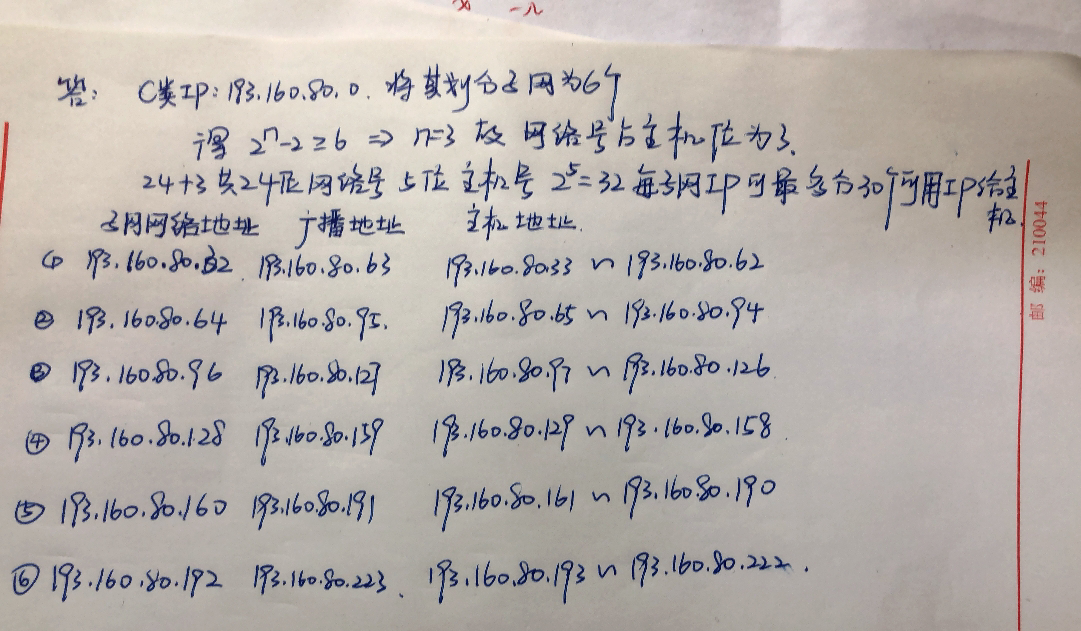 答: C类IP: 193.160.80.0. 将其划分子网为6个
得 2^n-2≥6 => n=3 故 网络号占主机位为3.
24+3共24位网络号 5位主机号 2^5=32 每子网IP可最多分30个可用IP给主机.
子网网络地址 广播地址 主机地址.
① 193.160.80.32 193.160.80.63 193.160.80.33 ~ 193.160.80.62
② 193.160.80.64 193.160.80.95. 193.160.80.65 ~ 193.160.80.94
③ 193.160.80.96 193.160.80.127 193.160.80.97 ~ 193.160.80.126.
④ 193.160.80.128 193.160.80.159 193.160.80.129 ~ 193.160.80.158.
⑤ 193.160.80.160 193.160.80.191 193.160.80.161 ~ 193.160.80.190
⑥ 193.160.80.192 193.160.80.223. 193.160.80.193 ~ 193.160.80.222.
邮 编: 210044